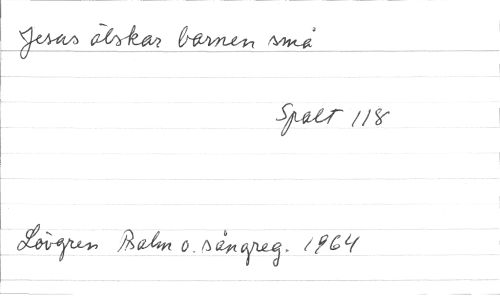 Jesus älskar barnen små
Spalt 118
Lövgren Psalm o. sångreg. 1964